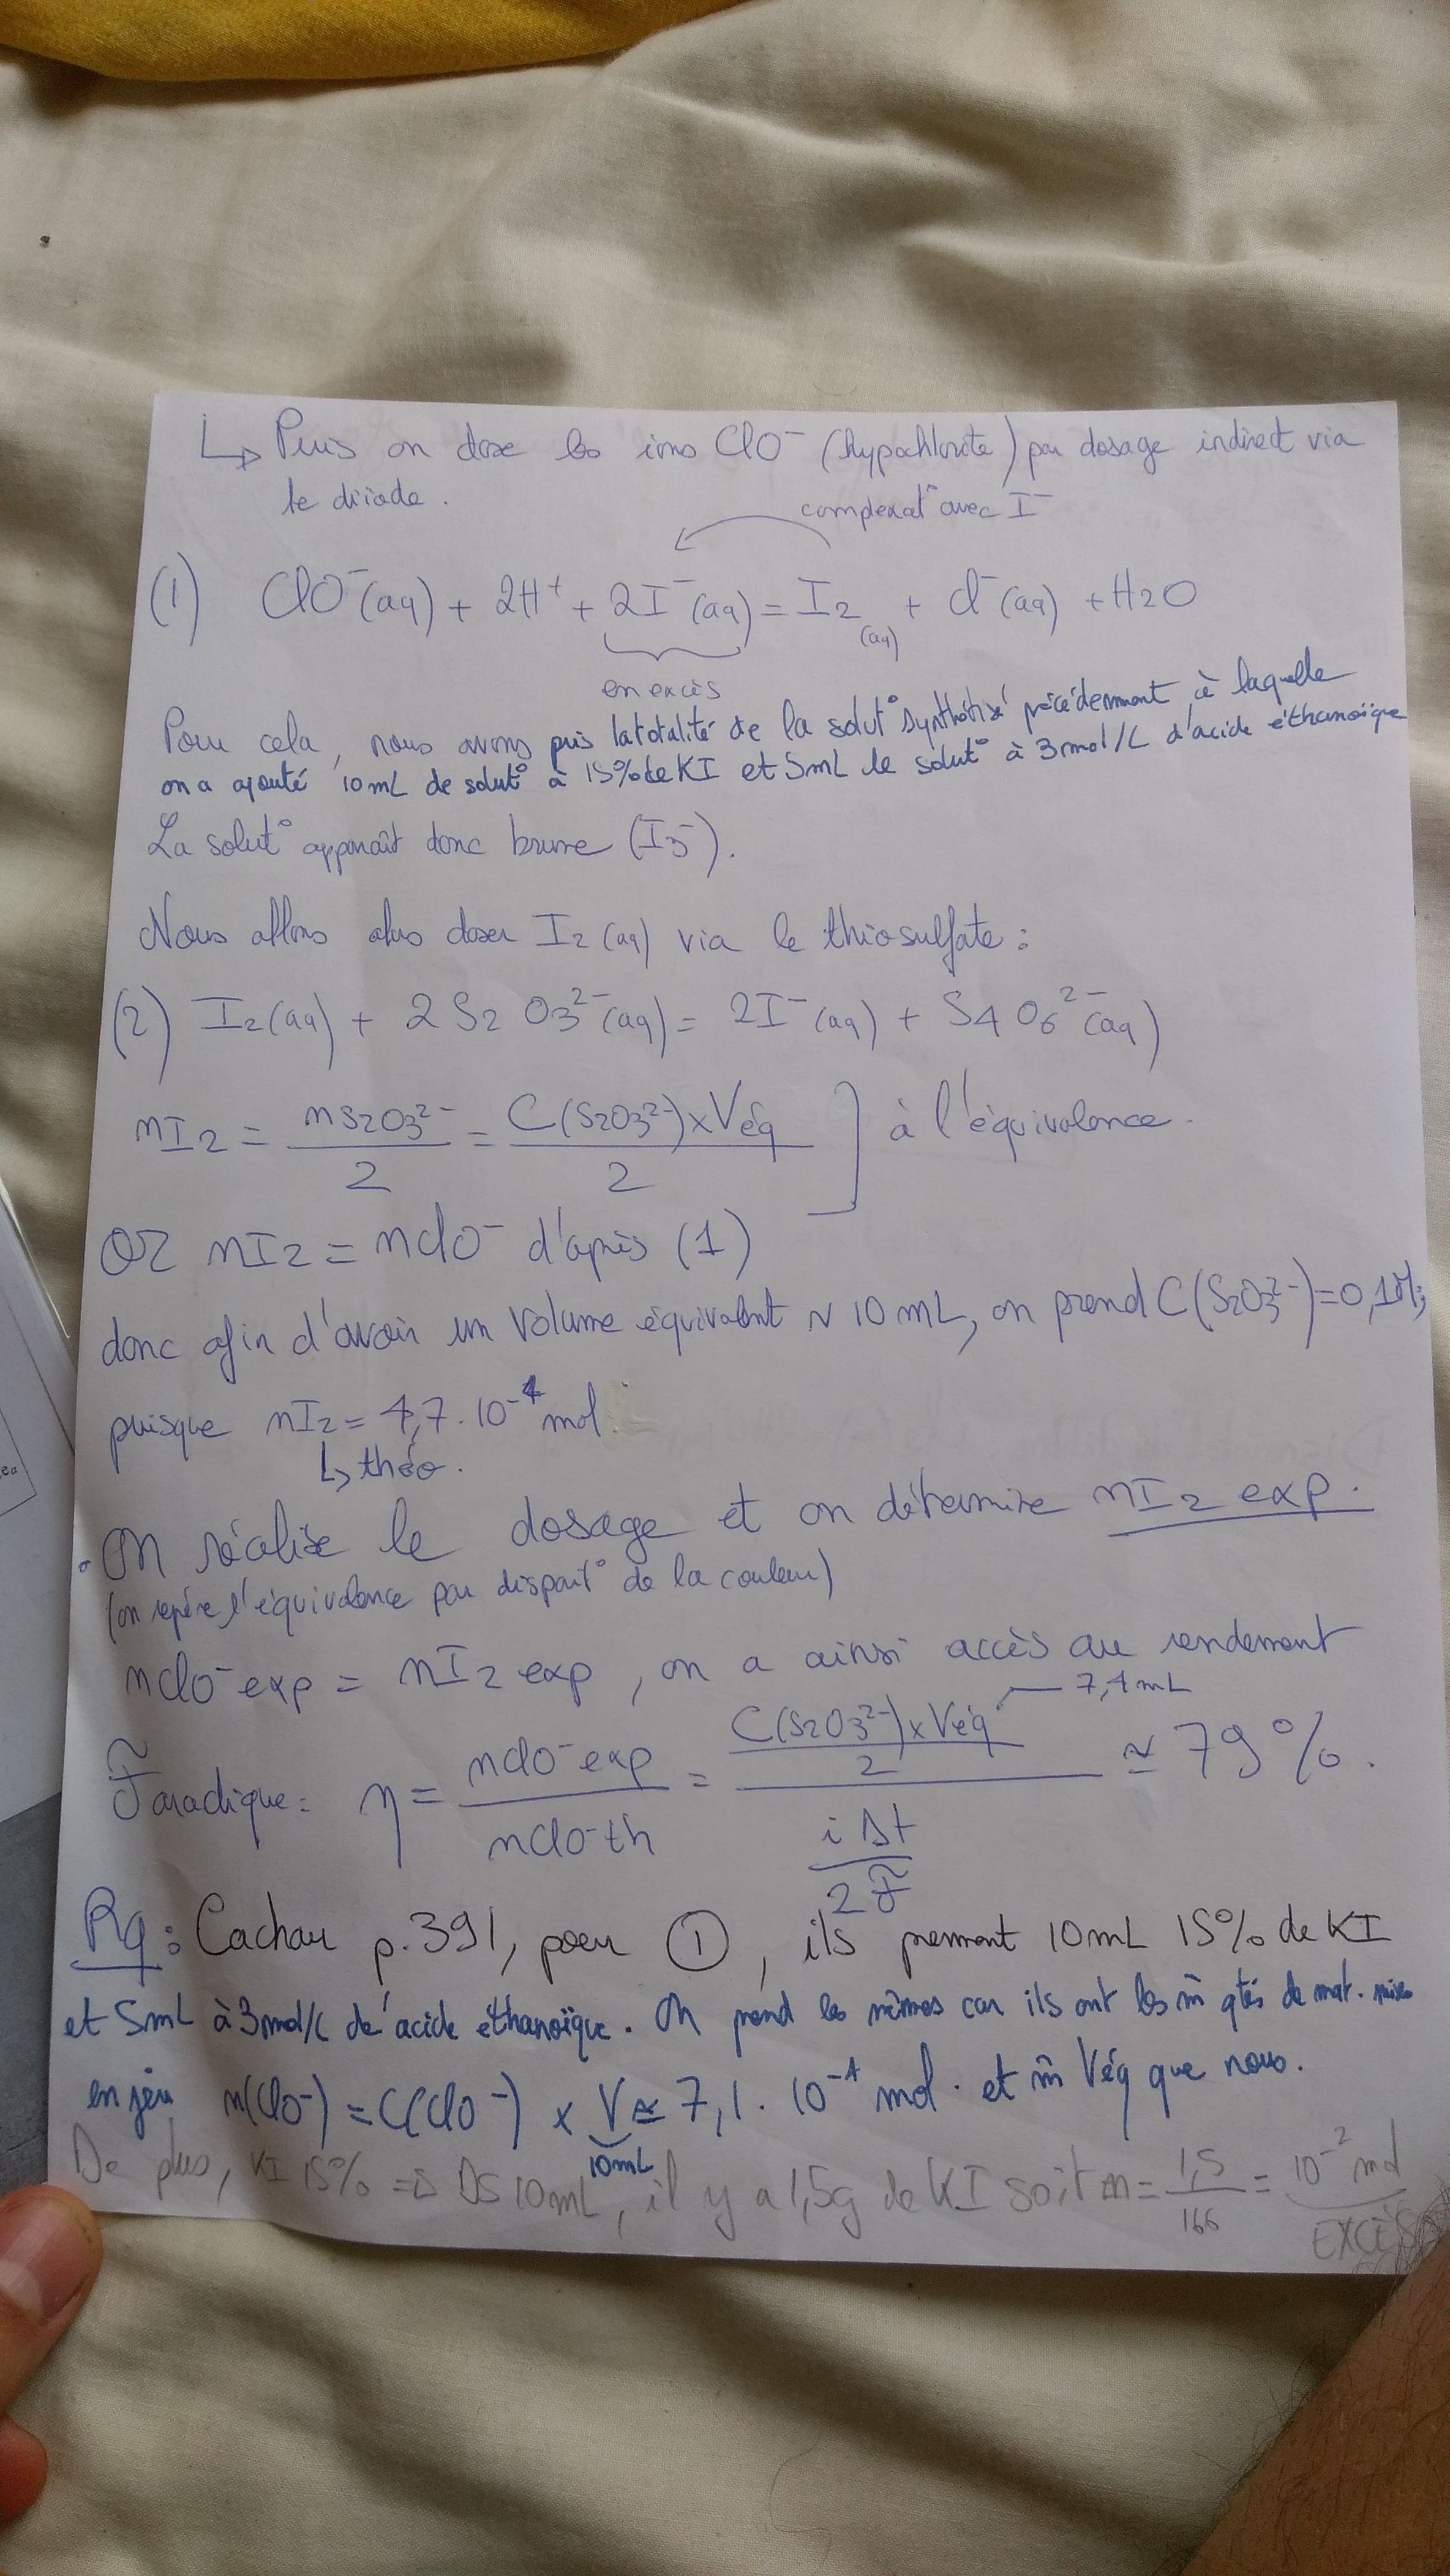 ↳ Puis on dose les ions ClO⁻ (hypochlorite) par dosage indirect via
le diiode.
complexat° avec I⁻
(1) ClO⁻(aq) + 2H⁺ + 2I⁻(aq) = I2(aq) + Cl⁻(aq) + H2O
en excès
Pour cela, nous avons pris la totalité de la solut° synthétisé précédemment, à laquelle
on a ajouté 10 mL de solut° à 15% de KI et 5mL de solut° à 3mol/L d'acide éthanoïque
La solut° apparaît donc brune (I3⁻).
Nous allons alors doser I2(aq) via le thiosulfate :
(2) I2(aq) + 2 S2O3²⁻(aq) = 2I⁻(aq) + S4O6²⁻(aq)
nI2 = nS2O3²⁻/2 = C(S2O3²⁻)×Véq/2 ] à l'équivalence.
OR nI2 = nClO⁻ d'après (1)
donc afin d'avoir un volume équivalent ~ 10 mL, on prend C(S2O3²⁻)=0,1M,
puisque nI2 = 4,7.10⁻⁴ mol.
↳ théo.
. On réalise le dosage et on détermine nI2 exp.
(on repère l'équivalence par disparit° de la couleur)
nClO⁻exp = nI2 exp, on a ainsi accès au rendement
7,4mL
Faradique : η = nClO⁻exp/nClO⁻th = (C(S2O3²⁻)×Véq/2)/(iΔt/2F) ≃ 79%.
Rq : Cachau p.391, pour ①, ils prennent 10mL 15% de KI
et 5mL à 3mol/L de acide éthanoïque. On prend les mêmes car ils ont les m̂ qtés de mat. mises
en jeu n(ClO⁻) = C(ClO⁻) × V ≃ 7,1.10⁻⁴ mol. et m̂ Véq que nous.
10mL
De plus, KI 15% => DS 10mL, il y a 1,5g de KI soit n = 1,5/166 = 10⁻² mol
EXCÈS